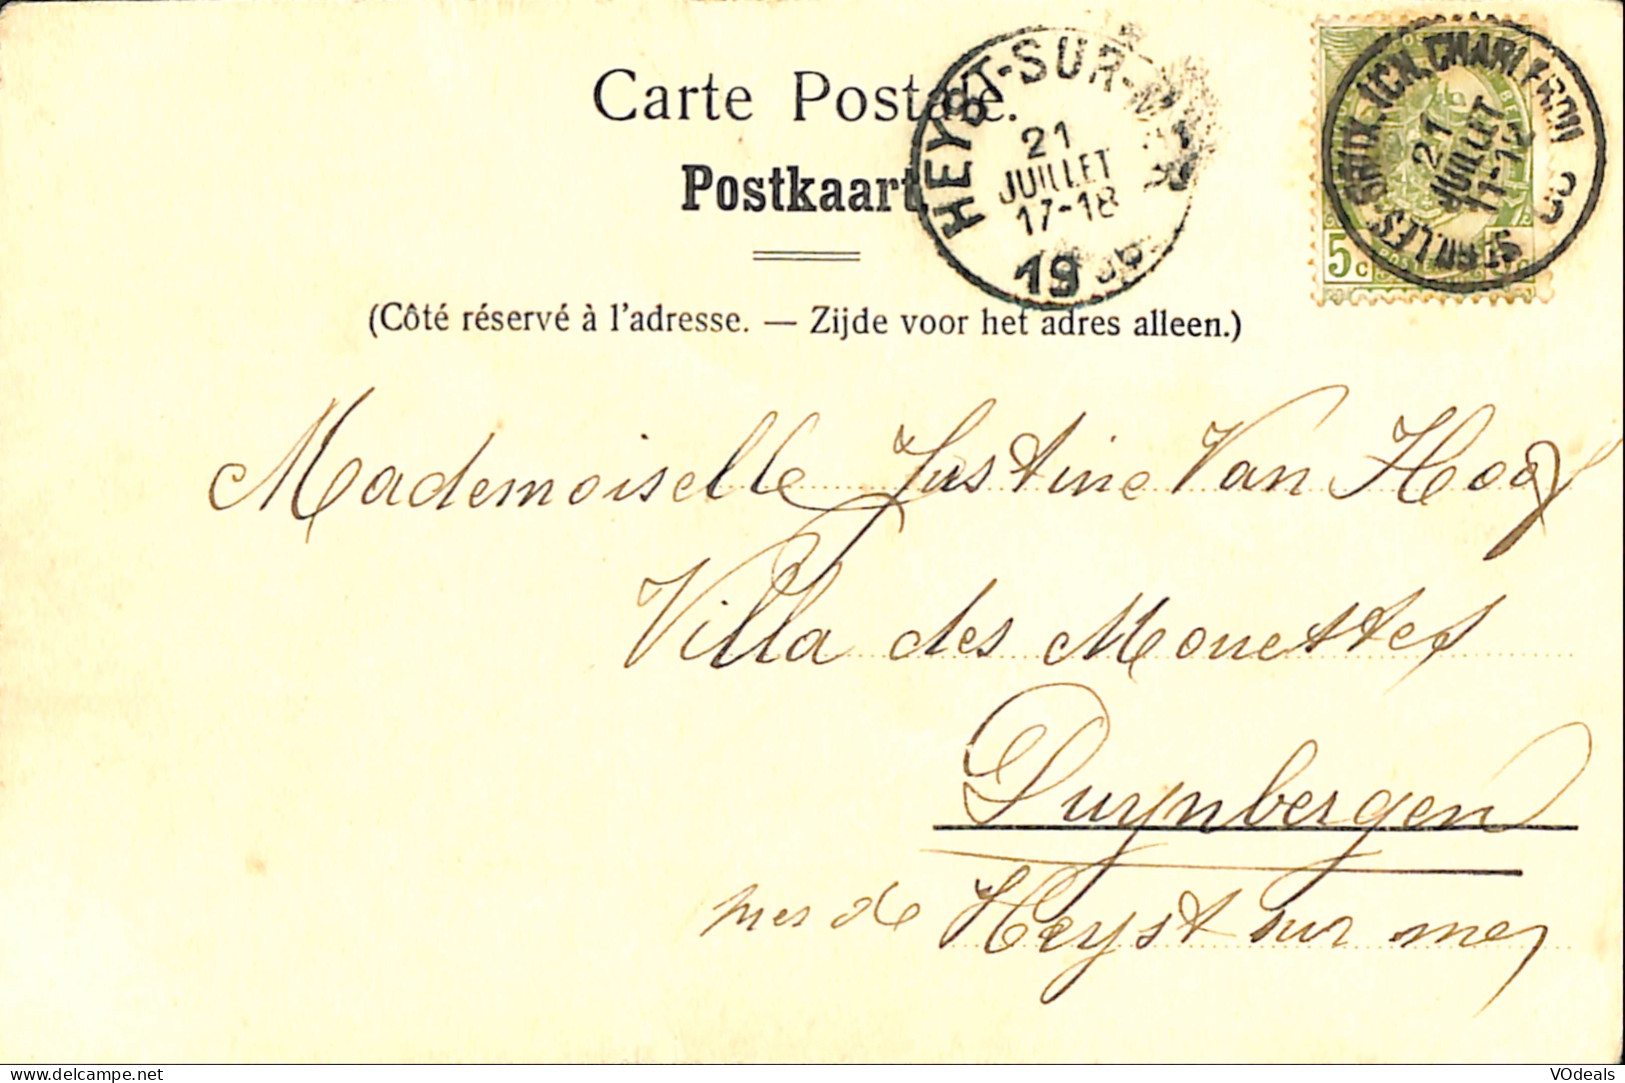 Carte Postale.
Postkaart
(Côté réservé à l'adresse. — Zijde voor het adres alleen.)
HEYST-SUR-M
21
JUILLET
17-18
19
CHARLEROI
21
JUILLET
11-12
5c
Mademoiselle Justine Van Hoof
Villa des Mouettes
Duynbergen
près de Heyst sur mer
delcampe.net
VOdeals